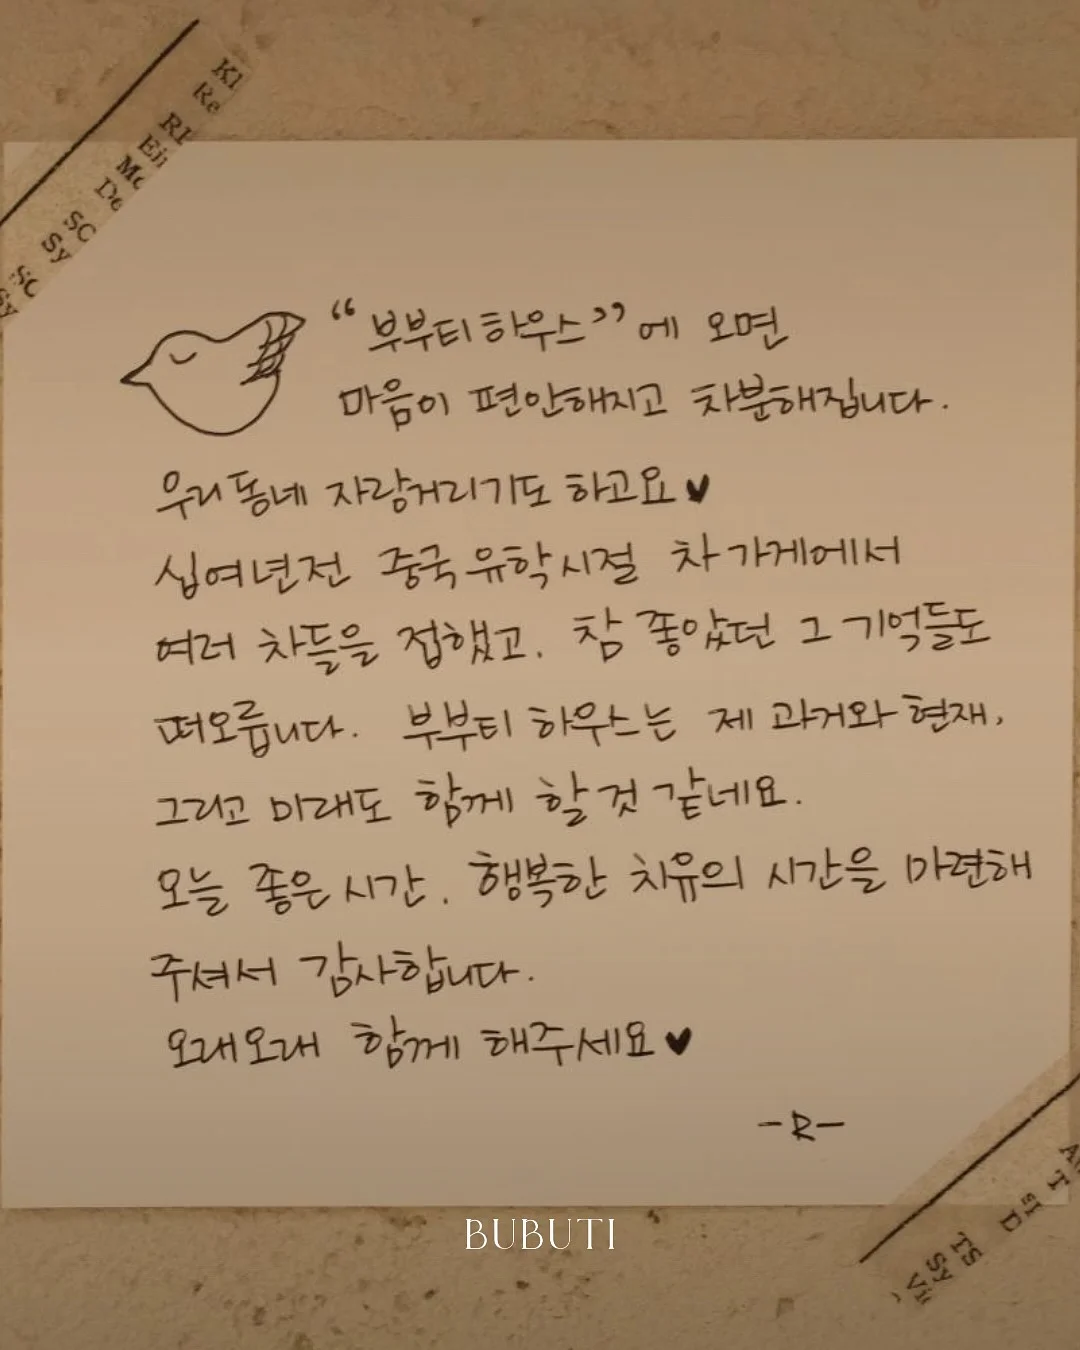 Kl
Re
RI
Ein
Mo
De
SC
Sy
SC
Sy
“부부티하우스”에 오면
마음이 편안해지고 차분해집니다.
우리동네 자랑거리기도 하고요♥
십여년전 중국유학시절 차가게에서
여러 차들을 접했고. 참 좋았던 그 기억들도
떠오릅니다. 부부티 하우스는 제 과거와 현재,
그리고 미래도 함께 할것 같네요.
오늘 좋은 시간. 행복한 치유의 시간을 마련해
주셔서 감사합니다.
오래오래 함께 해주세요♥
-R-
BUBUTI
T
D
TS
Sy